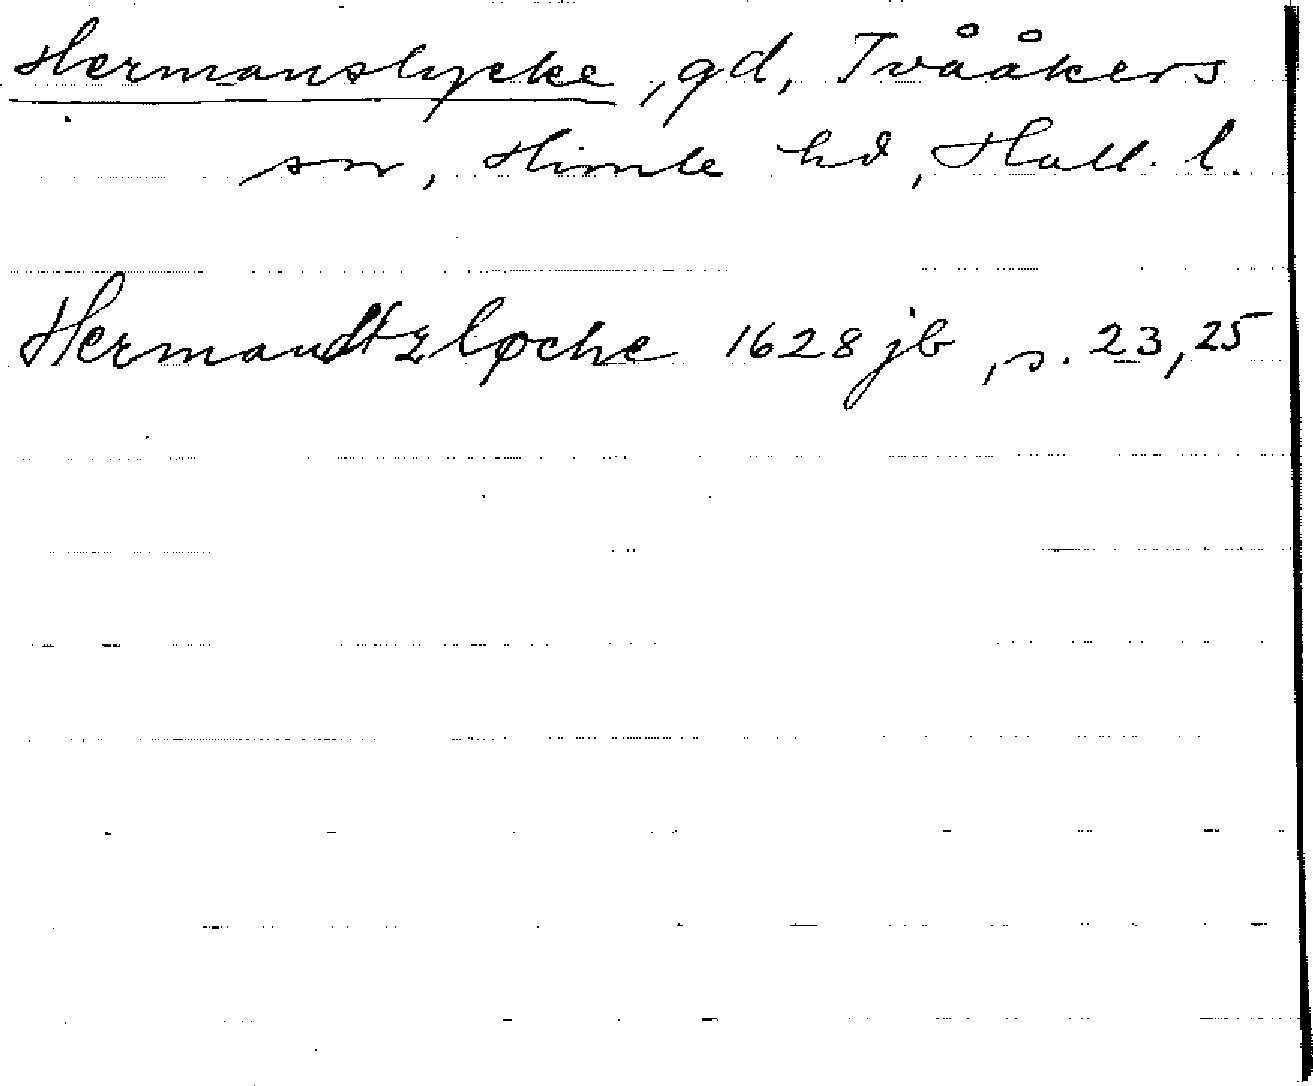 Hermanslycke, gd, Tvååkers
sn, Himle hd, Hall. l.
Hermandtzløche 1628 jb, s. 23, 25